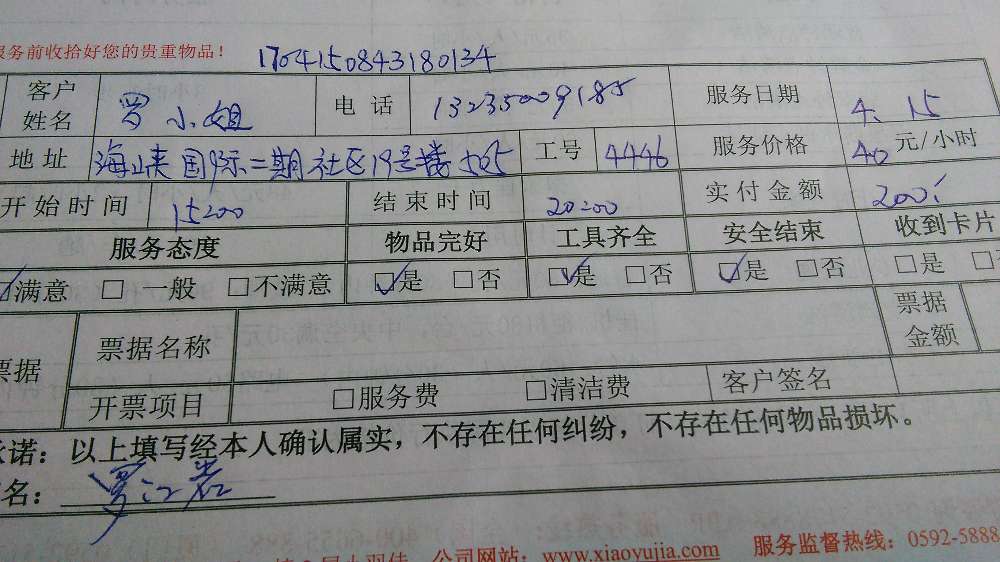 服务前收拾好您的贵重物品！
1704150843180134
客户姓名 罗小姐 电话 13235009185 服务日期 4.15
地址 海峡国际二期社区19号楼505 工号 4446 服务价格 40元/小时
开始时间 15:00 结束时间 20:00 实付金额 200
服务态度 物品完好 工具齐全 安全结束 收到卡片
☑满意 □一般 □不满意 ☑是 □否 ☑是 □否 ☑是 □否 □是
票据 票据名称 票据金额
开票项目 □服务费 □清洁费 客户签名
诺：以上填写经本人确认属实，不存在任何纠纷，不存在任何物品损坏。
名：罗江岩
公司网站：www.xiaoyujia.com 服务监督热线：0592-5888